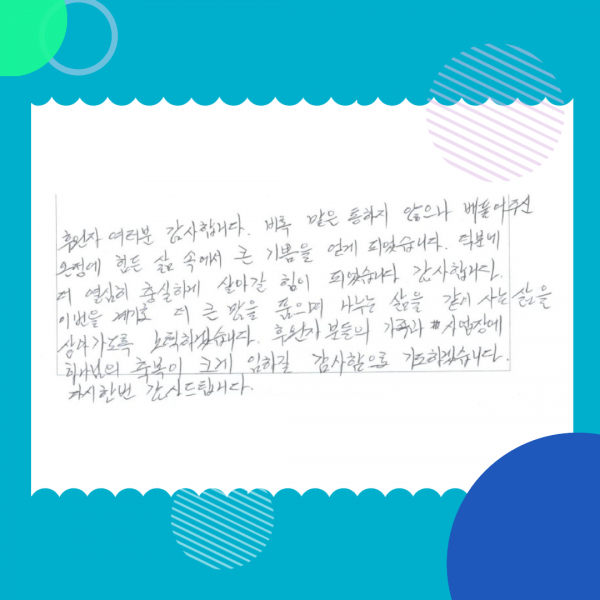 후원자 여러분 감사합니다. 비록 말은 통하지 않으나 베풀어주신
온정에 힘든 삶 속에서 큰 기쁨을 얻게 되었습니다. 덕분에
더 열심히 충실하게 살아갈 힘이 되었습니다 감사합니다.
이번을 계기로 더 큰 맘을 품으며 나누는 삶을 같이 사는 삶을
살아가도록 노력하겠습니다. 후원자 분들의 가족과 사업장에
하나님의 축복이 크게 임하길 감사함으로 기도하겠습니다.
다시한번 감사드립니다.